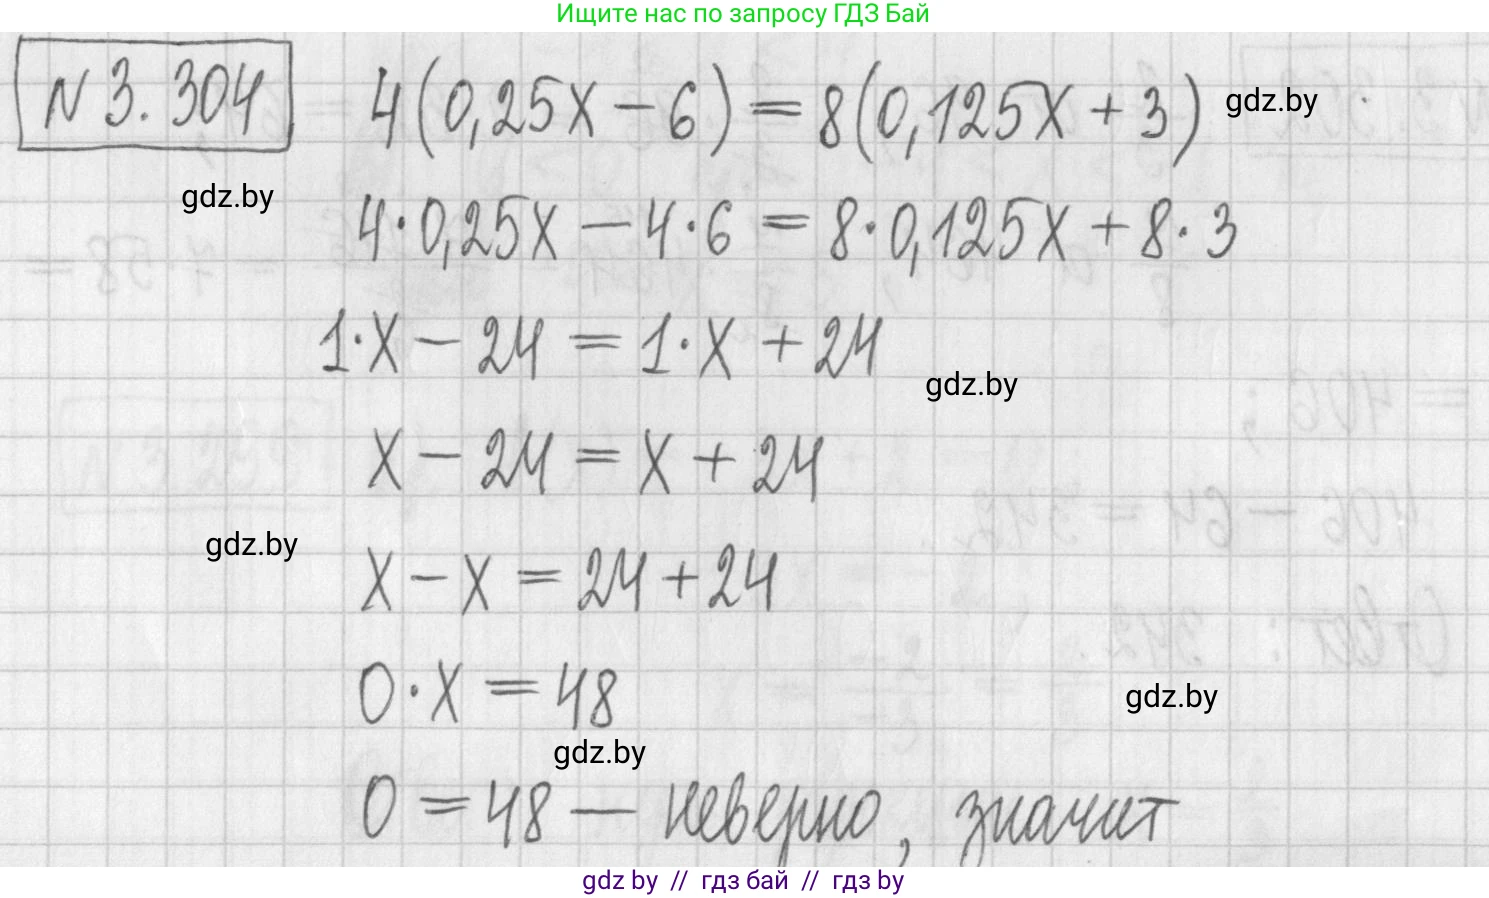 Ищите нас по запросу ГДЗ Бай
N 3.304
4(0,25x − 6) = 8(0,125x + 3)
gdz.by
gdz.by
4·0,25x − 4·6 = 8·0,125x + 8·3
1·x − 24 = 1·x + 24
gdz.by
x − 24 = x + 24
gdz.by
x − x = 24 + 24
0·x = 48
gdz.by
gdz.by
0 = 48 — неверно, значит
gdz by // гдз бай // гдз by